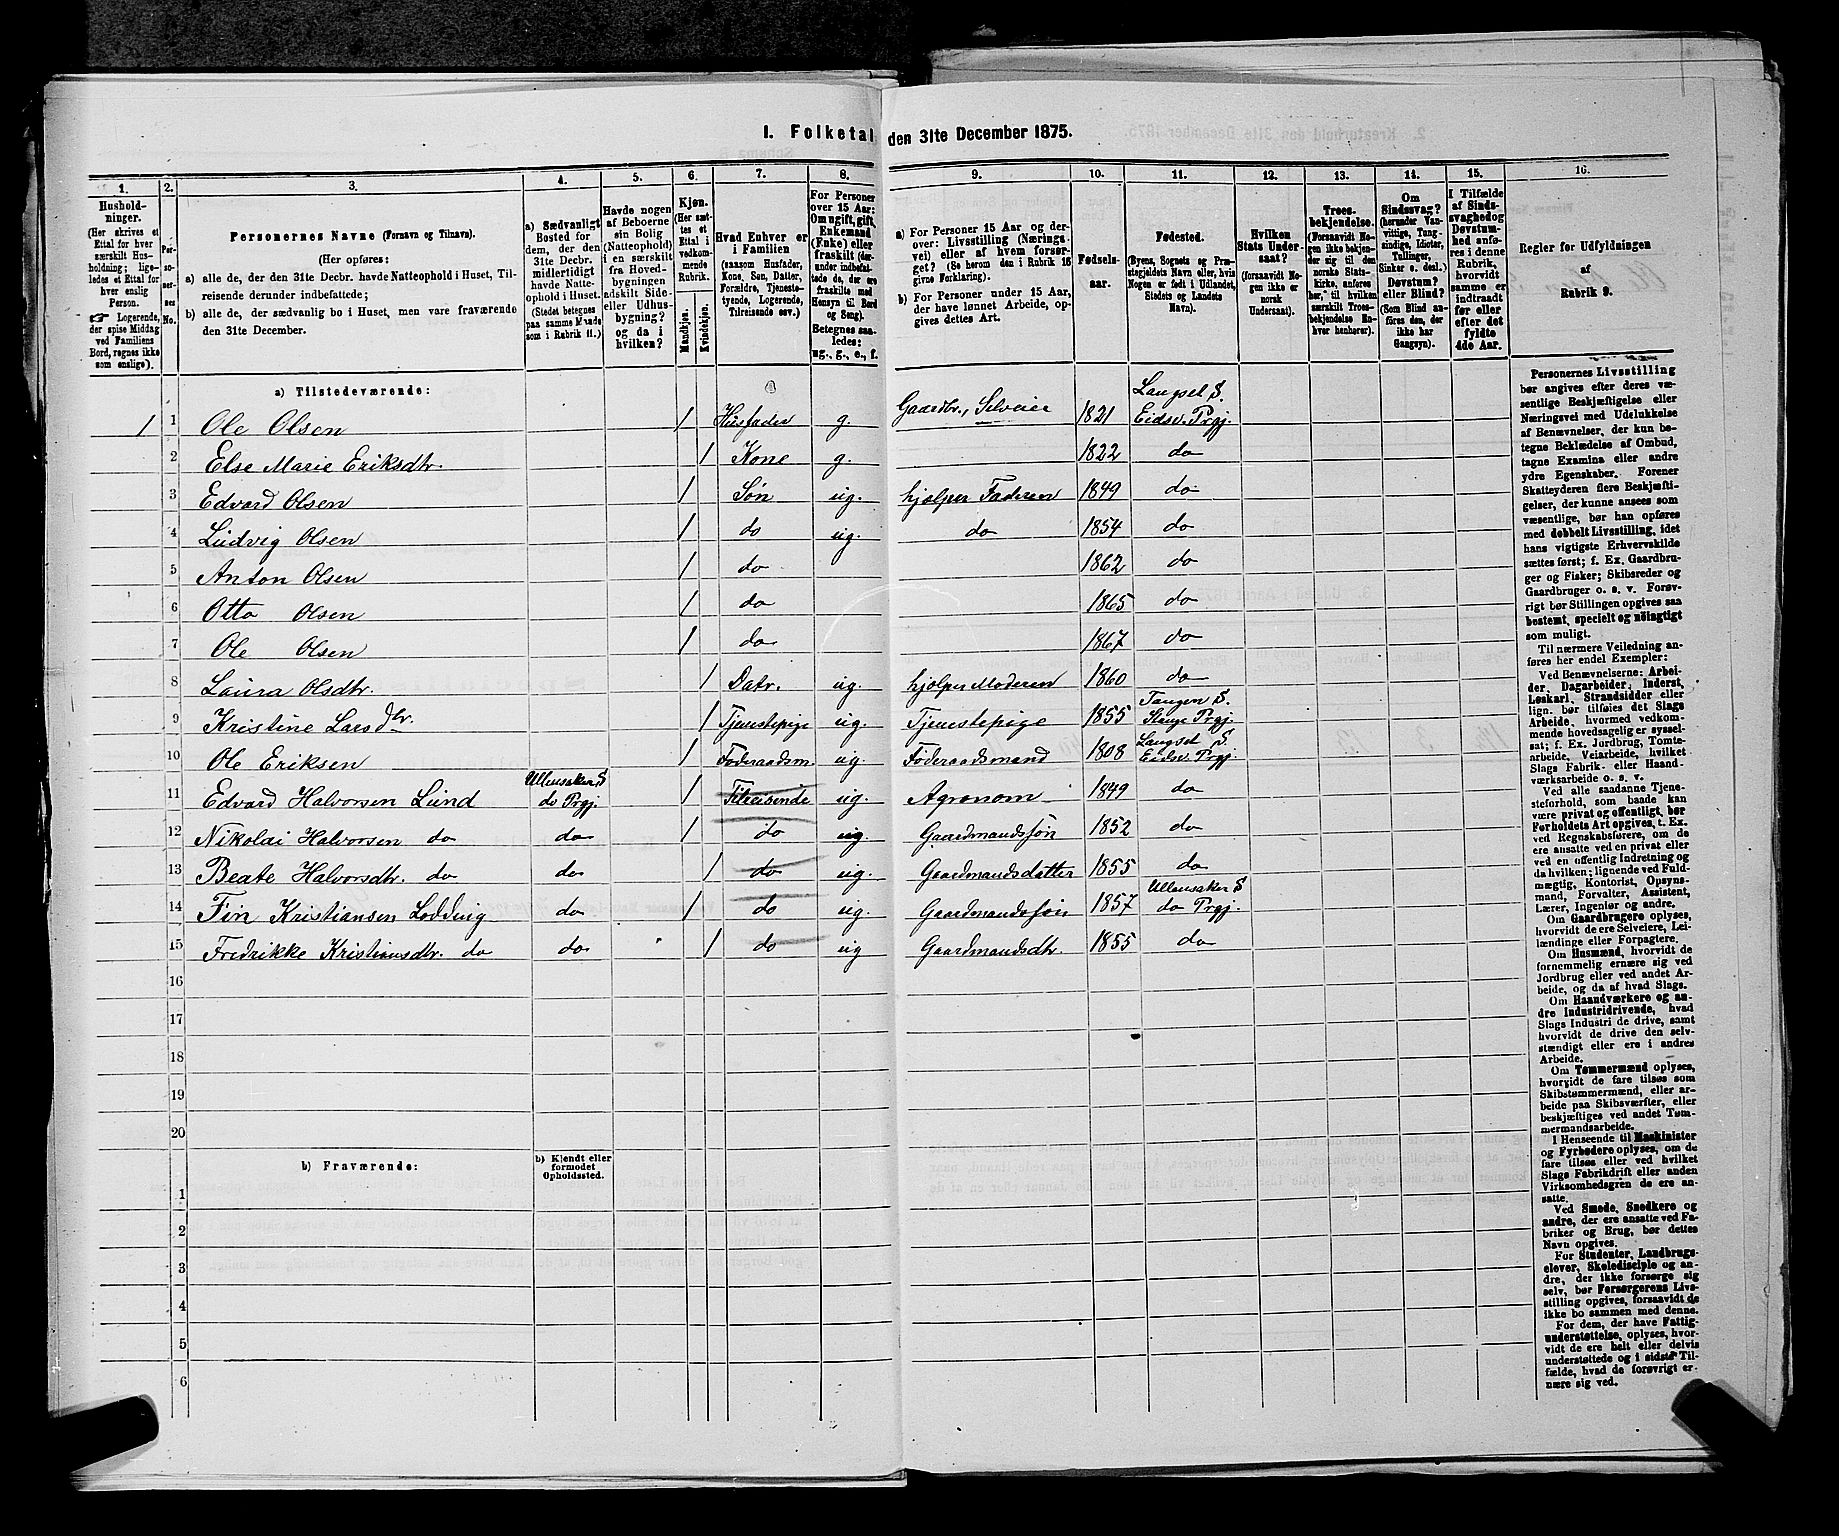 I. Folketal den 31te December 1875.
1. 2. 3. 4. 5. 6. 7. 8. 9. 10. 11. 12. 13. 14. 15. 16.
Hushold-
ninger.
(Her skrives et
Ettal for hver
særskilt Hus-
holdning; lige-
ledes et Ettal for
hver enslig
Person.
☞ Logerende,
der spise Middag
ved Familiens
Bord, regnes ikke
som enslige).
Per-
so-
ner-
nes
No.
Personernes Navne (Fornavn og Tilnavn).
(Her opføres:
a) alle de, der den 31te Decbr. havde Natteophold i Huset, Til-
reisende derunder indbefattede;
b) alle de, der sædvanlig bo i Huset, men vare fraværende
den 31te December.
a) Sædvanligt
Bosted for
dem, der den
31te Decbr.
midlertidigt
havde Natte-
ophold i Huset.
(Stedet betegnes
paa samme Maade
som i Rubrik 11.)
Havde nogen
af Beboerne
sin Bolig
(Natteophold)
i en særskilt
fra Hoved-
bygningen
adskilt Side-
eller Udhus-
bygning?
og da i
hvilken?
Kjøn.
(Her sæt-
tes et
Ettal i
vedkom-
mende
Rubrik.)
Mandkjøn.
Kvindekjøn.
Hvad Enhver er
i Familien
(saasom Husfader,
Kone, Søn, Datter,
Forældre, Tjeneste-
tyende, Logerende,
Tilreisende osv.)
For Personer
over 15 Aar:
Om ugift, gift,
Enkemand
(Enke) eller
fraskilt (der-
under indbefat-
tede de, der ere
fraskilte med
Hensyn til Bord
og Seng).
Betegnes saa-
ledes:
ug., g., e., f.
a) For Personer 15 Aar og der-
over: Livsstilling (Nærings-
vei) eller af hvem forsør-
get? (Se herom den i Rubrik 16
givne Forklaring).
b) For Personer under 15 Aar,
der have lønnet Arbeide, op-
gives dettes Art.
Fødsels-
aar.
Fødested.
(Byens, Sognets og Præ-
stegjeldets Navn eller, hvis
Nogen er født i Udlandet,
Stedets og Landets
Navn).
Hvilken
Stats Under-
saat?
(forsaavidt No-
gen ikke er
norsk
Undersaat).
Troes-
bekjendelse.
(Forsaavidt No-
gen ikke bekjen-
der sig til den
norske Stats-
kirke, anføres
her, til hvilken
særskilt Troes-
bekjendelse En-
hver henhører).
Om
Sindssvag?
(herunder Van-
vittige, Tung-
sindige, Idioter,
Tullinger,
Sinker o. desl.)
Døvstum?
eller Blind?
(Som Blind an-
føres den, der
ikke har
Gangsyn).
I Tilfælde
af Sinds-
svaghed og
Døvstum-
hed anfø-
res i denne
Rubrik,
hvorvidt
samme er
indtraadt
før eller
efter det
fyldte
4de Aar.
Regler for Udfyldningen
af
Rubrik 9.
a) Tilstedeværende:
1 1 Ole Olsen 1 Husfader g. Gaardbr., Selveier 1821 Langset S. Eidsv. Prgj.
2 Else Marie Eriksdtr. 1 Kone g. 1822 do
3 Edvard Olsen 1 Søn ug. hjælper Faderen 1849 do
4 Ludvig Olsen 1 do ug. do 1854 do
5 Anton Olsen 1 do 1862 do
6 Otto Olsen 1 do 1865 do
7 Ole Olsen 1 do 1867 do
8 Laura Olsdtr. 1 Datr. ug. hjælper Moderen 1860 do
9 Kristine Larsdtr. 1 Tjenestepige ug. Tjenestepige 1855 Tangen S. Stange Prgj.
10 Ole Eriksen 1 Føderaadsm. ug Føderaadsmand 1808 Langset S. Eidsv. Prgj.
11 Edvard Halvorsen Lund Ullensaker S do Prgj. 1 Tilreisende ug. Agronom 1849 do
12 Nikolai Halvorsen do do 1 do ug. Gaardmandssøn 1852 do
13 Beate Halvorsdtr. do do 1 do ug. Gaardmandsdatter 1855 do
14 Fin Kristiansen Lodding do 1 do ug. Gaardmandssøn 1857 Ullensaker S do Prgj.
15 Fredrikke Kristiansdtr. do do 1 do ug Gaardmandsdtr. 1855 do
16
17
18
19
20
b) Fraværende:
b) Kjendt eller
formodet
Opholdssted.
1
2
3
4
5
6
Personernes Livsstilling
bør angives efter deres væ-
sentlige Beskjæftigelse eller
Næringsvei med Udelukkelse
af Benævnelser, der kun be-
tegne Beklædelse af Ombud,
tagne Examina eller andre
ydre Egenskaber. Forener
Skatteyderen flere Beskjæfti-
gelser, der kunne ansees som
væsentlige, bør han opføres
med dobbelt Livsstilling, idet
hans vigtigste Erhvervskilde
sættes først; f. Ex. Gaardbru-
ger og Fisker; Skibsreder og
Gaardbruger o. s. v. Forøv-
rigt bør Stillingen opgives saa
bestemt, specielt og nøiagtigt
som muligt.
Til nærmere Veiledning an-
føres her endel Exempler:
Ved Benævnelserne: Arbei-
der, Dagarbeider, Inderst,
Løskarl, Strandsidder eller
lign. bør tilføies det Slags
Arbeide, hvormed vedkom-
mende hovedsagelig er syssel-
sat; f. Ex. Jordbrug, Tomte-
arbeide, Veiarbeide, hvilket
Slags Fabrik- eller Haand-
værksarbeide o. s. v.
Ved alle saadanne Tjene-
steforhold, som baade kan
være privat og offentligt, bør
Forholdets Art opgives, t. Ex.
ved Regnskabsførere, om de
ere ansatte ved en privat eller
ved en offentlig Indretning og
da hvilken; lignende ved Fuld-
mægtig, Kontorist, Opsyns-
mand, Forvalter, Assistent,
Lærer, Ingeniør og andre.
Om Gaardbrugere oplyses,
hvorvidt de ere Selveiere, Lei-
lændinge eller Forpagtere.
Om Husmænd, hvorvidt de
fornemmelig ernære sig ved
Jordbrug eller ved andet Ar-
beide, og da af hvad Slags.
Om Haandværkere og an-
dre Industridrivende, hvad
Slags Industri de drive, samt
hvorvidt de drive den selv-
stændigt eller ere i andres
Arbeide.
Om Tømmermænd oplyses,
hvorvidt de fare tilsøs som
Skibstømmermænd, eller ar-
beide paa Skibsværfter, eller
beskjæftiges ved andet Tøm-
mermandsarbeide.
I Henseende til Maskinister
og Fyrbødere oplyses, om de
fare tilsøs eller ved hvilket
Slags Fabrikdrift eller anden
Virksomhedsgren de ere an-
satte.
Ved Smede, Snedkere og
andre, der ere ansatte ved Fa-
briker og Brug, bør dettes
Navn opgives.
For Studenter, Landbrugs-
elever, Skoledisciple og an-
dre, der ikke forsørge sig
selv, bør Forsørgerens Livs-
stilling opgives, forsaavidt de
ikke bo sammen med denne.
For dem, der have Fattig-
understøttelse, oplyses, hvor-
vidt de ere helt eller delvis
understøttede og i sidste Til-
fælde, hvad de forøvrigt er-
nære sig ved.